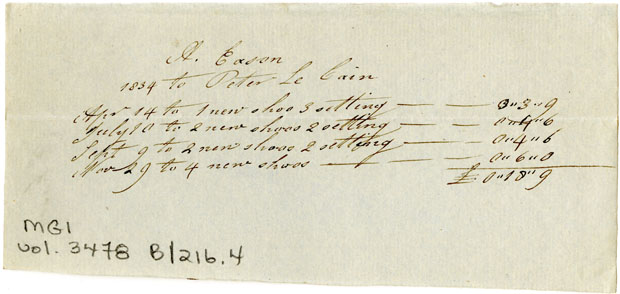 A. Eason
1834 to Peter Le Cain
Apr 14 to 1 new shoe 3 setting — — 0"3"9
July 10 to 2 new shoos 2 setting — — 0"4"6
Sept 9 to 2 new shoos 2 setting 0"4"6
Nov 29 to 4 new shoos — — — 0"6"0
£ 0"18"9
MG1
vol. 3478 B/216.4